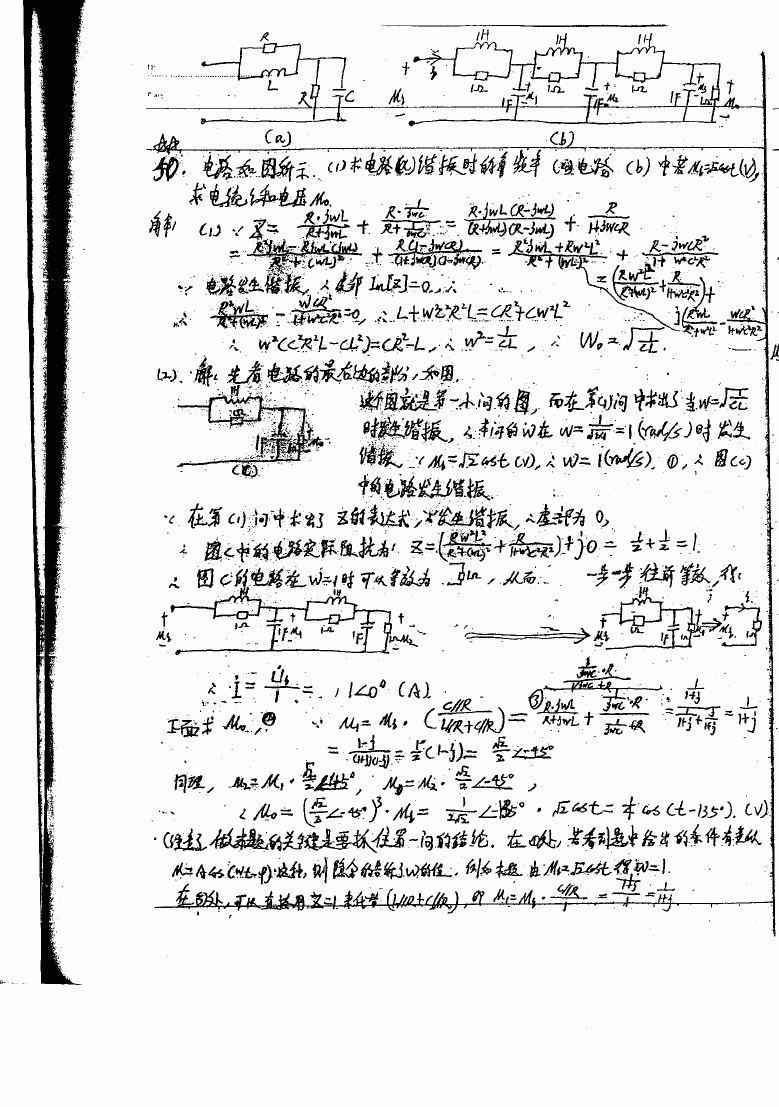 R
L
R
C
(a)
1H 1H 1H
1Ω 1Ω 1Ω
1F 1F 1F 1Ω
(b)
50. 电路如图所示. (1)求电路(a)谐振时的角频率 (2)电路 (b) 中若 us=√2cost(V),
求电流i和电压Uo.
解: (1) ∵ Z = R·jwL/(R+jwL) + (R·1/jwc)/(R+1/jwc) = R·jwL(R-jwL)/((R+jwL)(R-jwL)) + R/(1+jwCR)
= (R²jwL-RjwL(jwL))/(R²+(wL)²) + R(1-jwCR)/((1+jwCR)(1-jwCR)) = (R²jwL+Rw²L²)/(R²+(wL)²) + (R-jwCR²)/(1+w²C²R²)
= (Rw²L²/(R²+(wL)²) + R/(1+w²C²R²)) +
j(R²wL/(R²+w²L²) - wCR²/(1+w²C²R²))
∵ 电路发生谐振, ∴虚部 Im[Z]=0, ∴
∴ R²wL/(R²+(wL)²) - wCR²/(1+w²C²R²)=0, ∴ L+w²C²R²L=CR²+Cw²L²
∴ w²(C²R²L-CL²)=CR²-L, ∴ w²=1/CL, ∴ W₀=√(1/CL).
(2). 解: 先看电路的最右边的部分, 如图.
1H
1F
(c)
这个图就是第一小问的图, 而在第(1)问中求出了当w=√(1/CL)
时发生谐振, ∴本问的w在 w=1/√(1×1)=1(rad/s)时发生
谐振, ∵ us=√2cost (V), ∴ w=1(rad/s). ①, ∴ 图(c)
中的电路发生谐振.
∵ 在第(1)问中求出了Z的表达式, 发生谐振, ∴虚部为0,
∴ 图C中的电路实际阻抗为: Z=(Rw²L²/(R²+(wL)²) + R/(1+w²C²R²))+j0 = 1/2+1/2=1.
∴ 图C的电路在w=1时可以等效为 1Ω, 从而 一步一步往前等效, 得:
1H 1H 1H
1Ω 1Ω 1Ω
1F 1F 1Ω 1F 1Ω 1Ω
∴ İ = U̇s/1 = 1∠0° (A)
下面求 Uo, ② ∵ u₁=us·(C//R/(L//R+C//R)) = ③ = 1/(1+j)
= (1-j)/((1+j)(1-j)) = 1/2(1-j) = √2/2∠-45°
同理, u₂=u₁·√2/2∠-45°, u₀=u₂·√2/2∠-45°,
∴ u₀=(√2/2∠-45°)³·us = 1/(2√2)∠-135°·√2cost=1/2cos(t-135°). (V)
(注意: 做本题的关键是要抓住第一问的结论. 在①处, 若看到题中给出的条件有类似
u=Acos(wt+φ)这种, 则隐含的告诉了w的值. 例如本题 由us=√2cost得w=1.
在③处, 可以直接用Z=1来代替 (L//R+C//R), 即 u₁=us·(C//R)/1 = 1/(1+j).